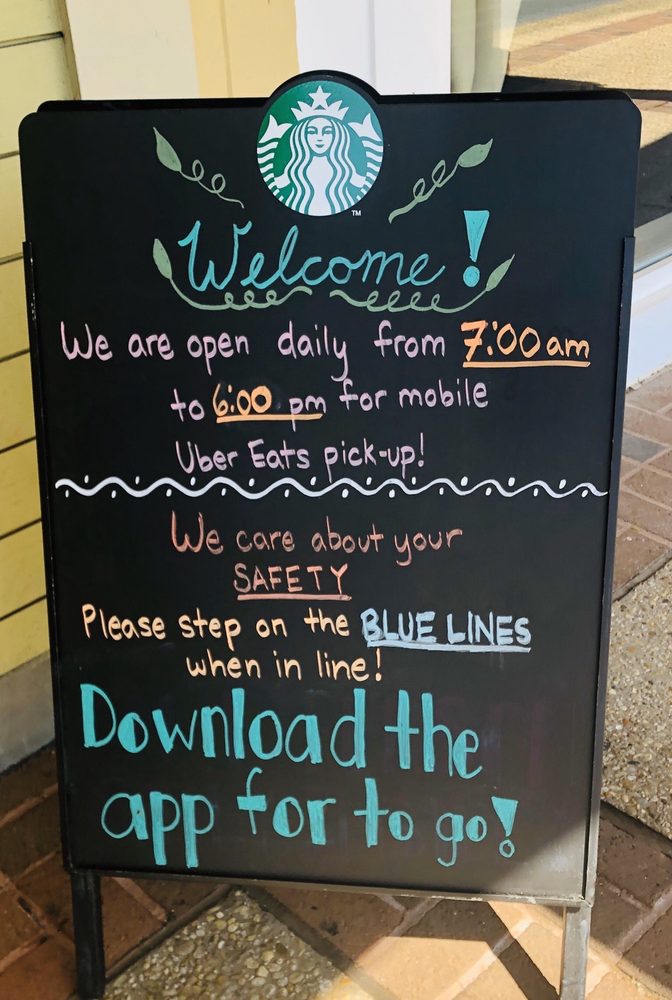 TM
Welcome!
We are open daily from 7:00 am
to 6:00 pm for mobile
Uber Eats pick-up!
We care about your
SAFETY
Please step on the BLUE LINES
when in line!
Download the
app for to go!